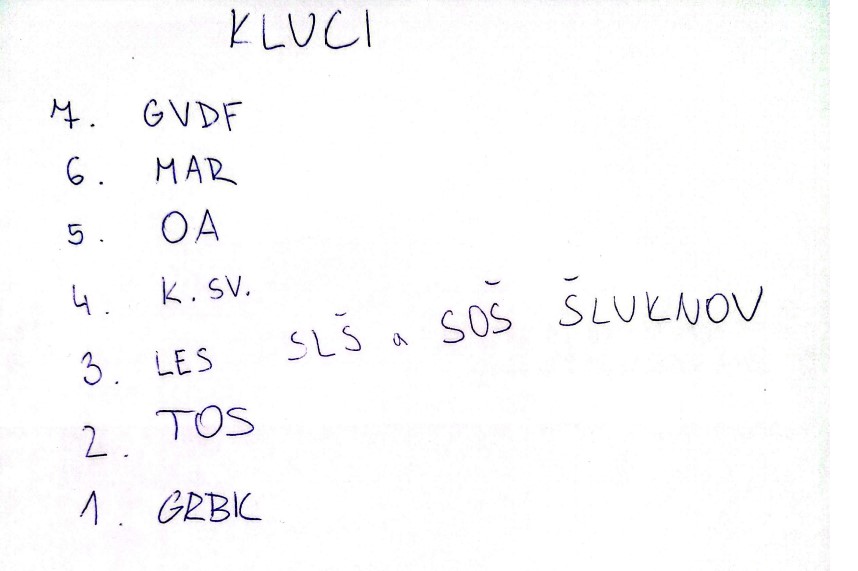 KLUCI
7. GVDF
6. MAR
5. OA
4. K. SV.
3. LES SLŠ a SOŠ ŠLUKNOV
2. TOS
1. GRBK